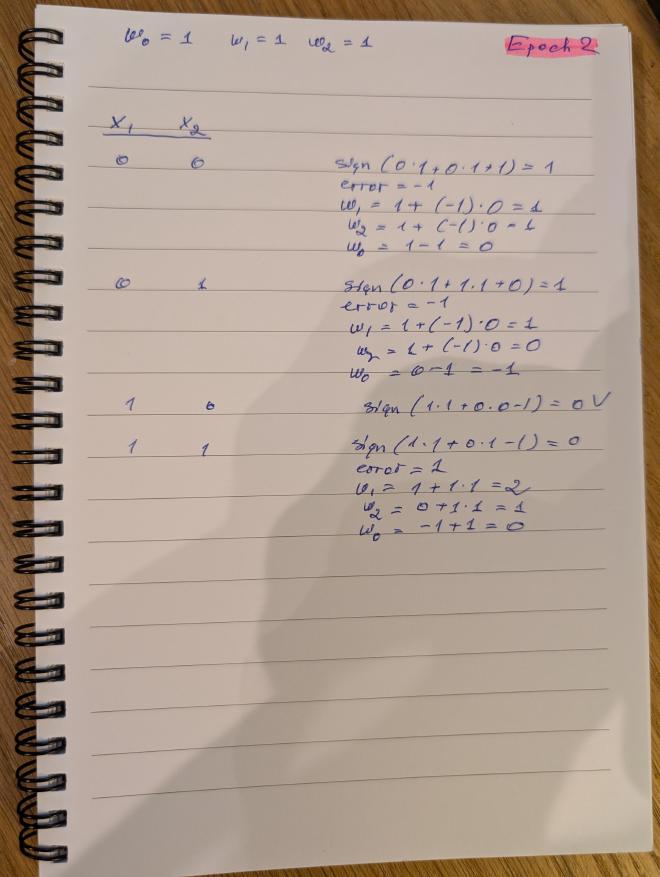 w₀ = 1 w₁ = 1 w₂ = 1 Epoch 2
x₁ x₂
0 0 sign (0·1+0·1+1) = 1
error = -1
w₁ = 1 + (-1)·0 = 1
w₂ = 1 + (-1)·0 = 1
w₀ = 1-1 = 0
0 1 sign (0·1+1·1+0) = 1
error = -1
w₁ = 1+(-1)·0 = 1
w₂ = 1+(-1)·0 = 0
w₀ = 0-1 = -1
1 0 sign (1·1+0·0-1) = 0 V
1 1 sign (1·1+0·1-1) = 0
error = 1
w₁ = 1+1·1 = 2
w₂ = 0+1·1 = 1
w₀ = -1+1 = 0